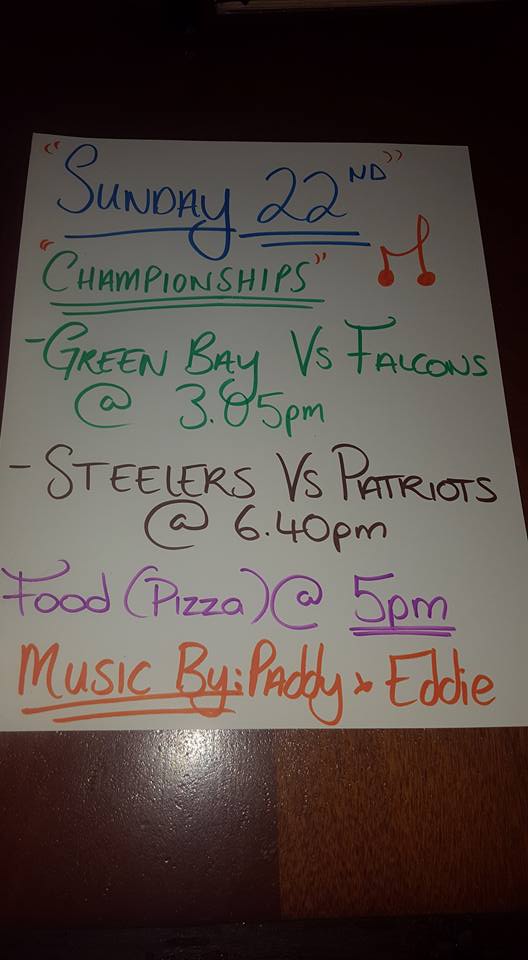 "SUNDAY 22ND"
"CHAMPIONSHIPS"
- GREEN BAY Vs FALCONS
@ 3.05pm
- STEELERS Vs PATRIOTS
@ 6.40pm
Food (Pizza) @ 5pm
MUSIC By: PAddy & Eddie